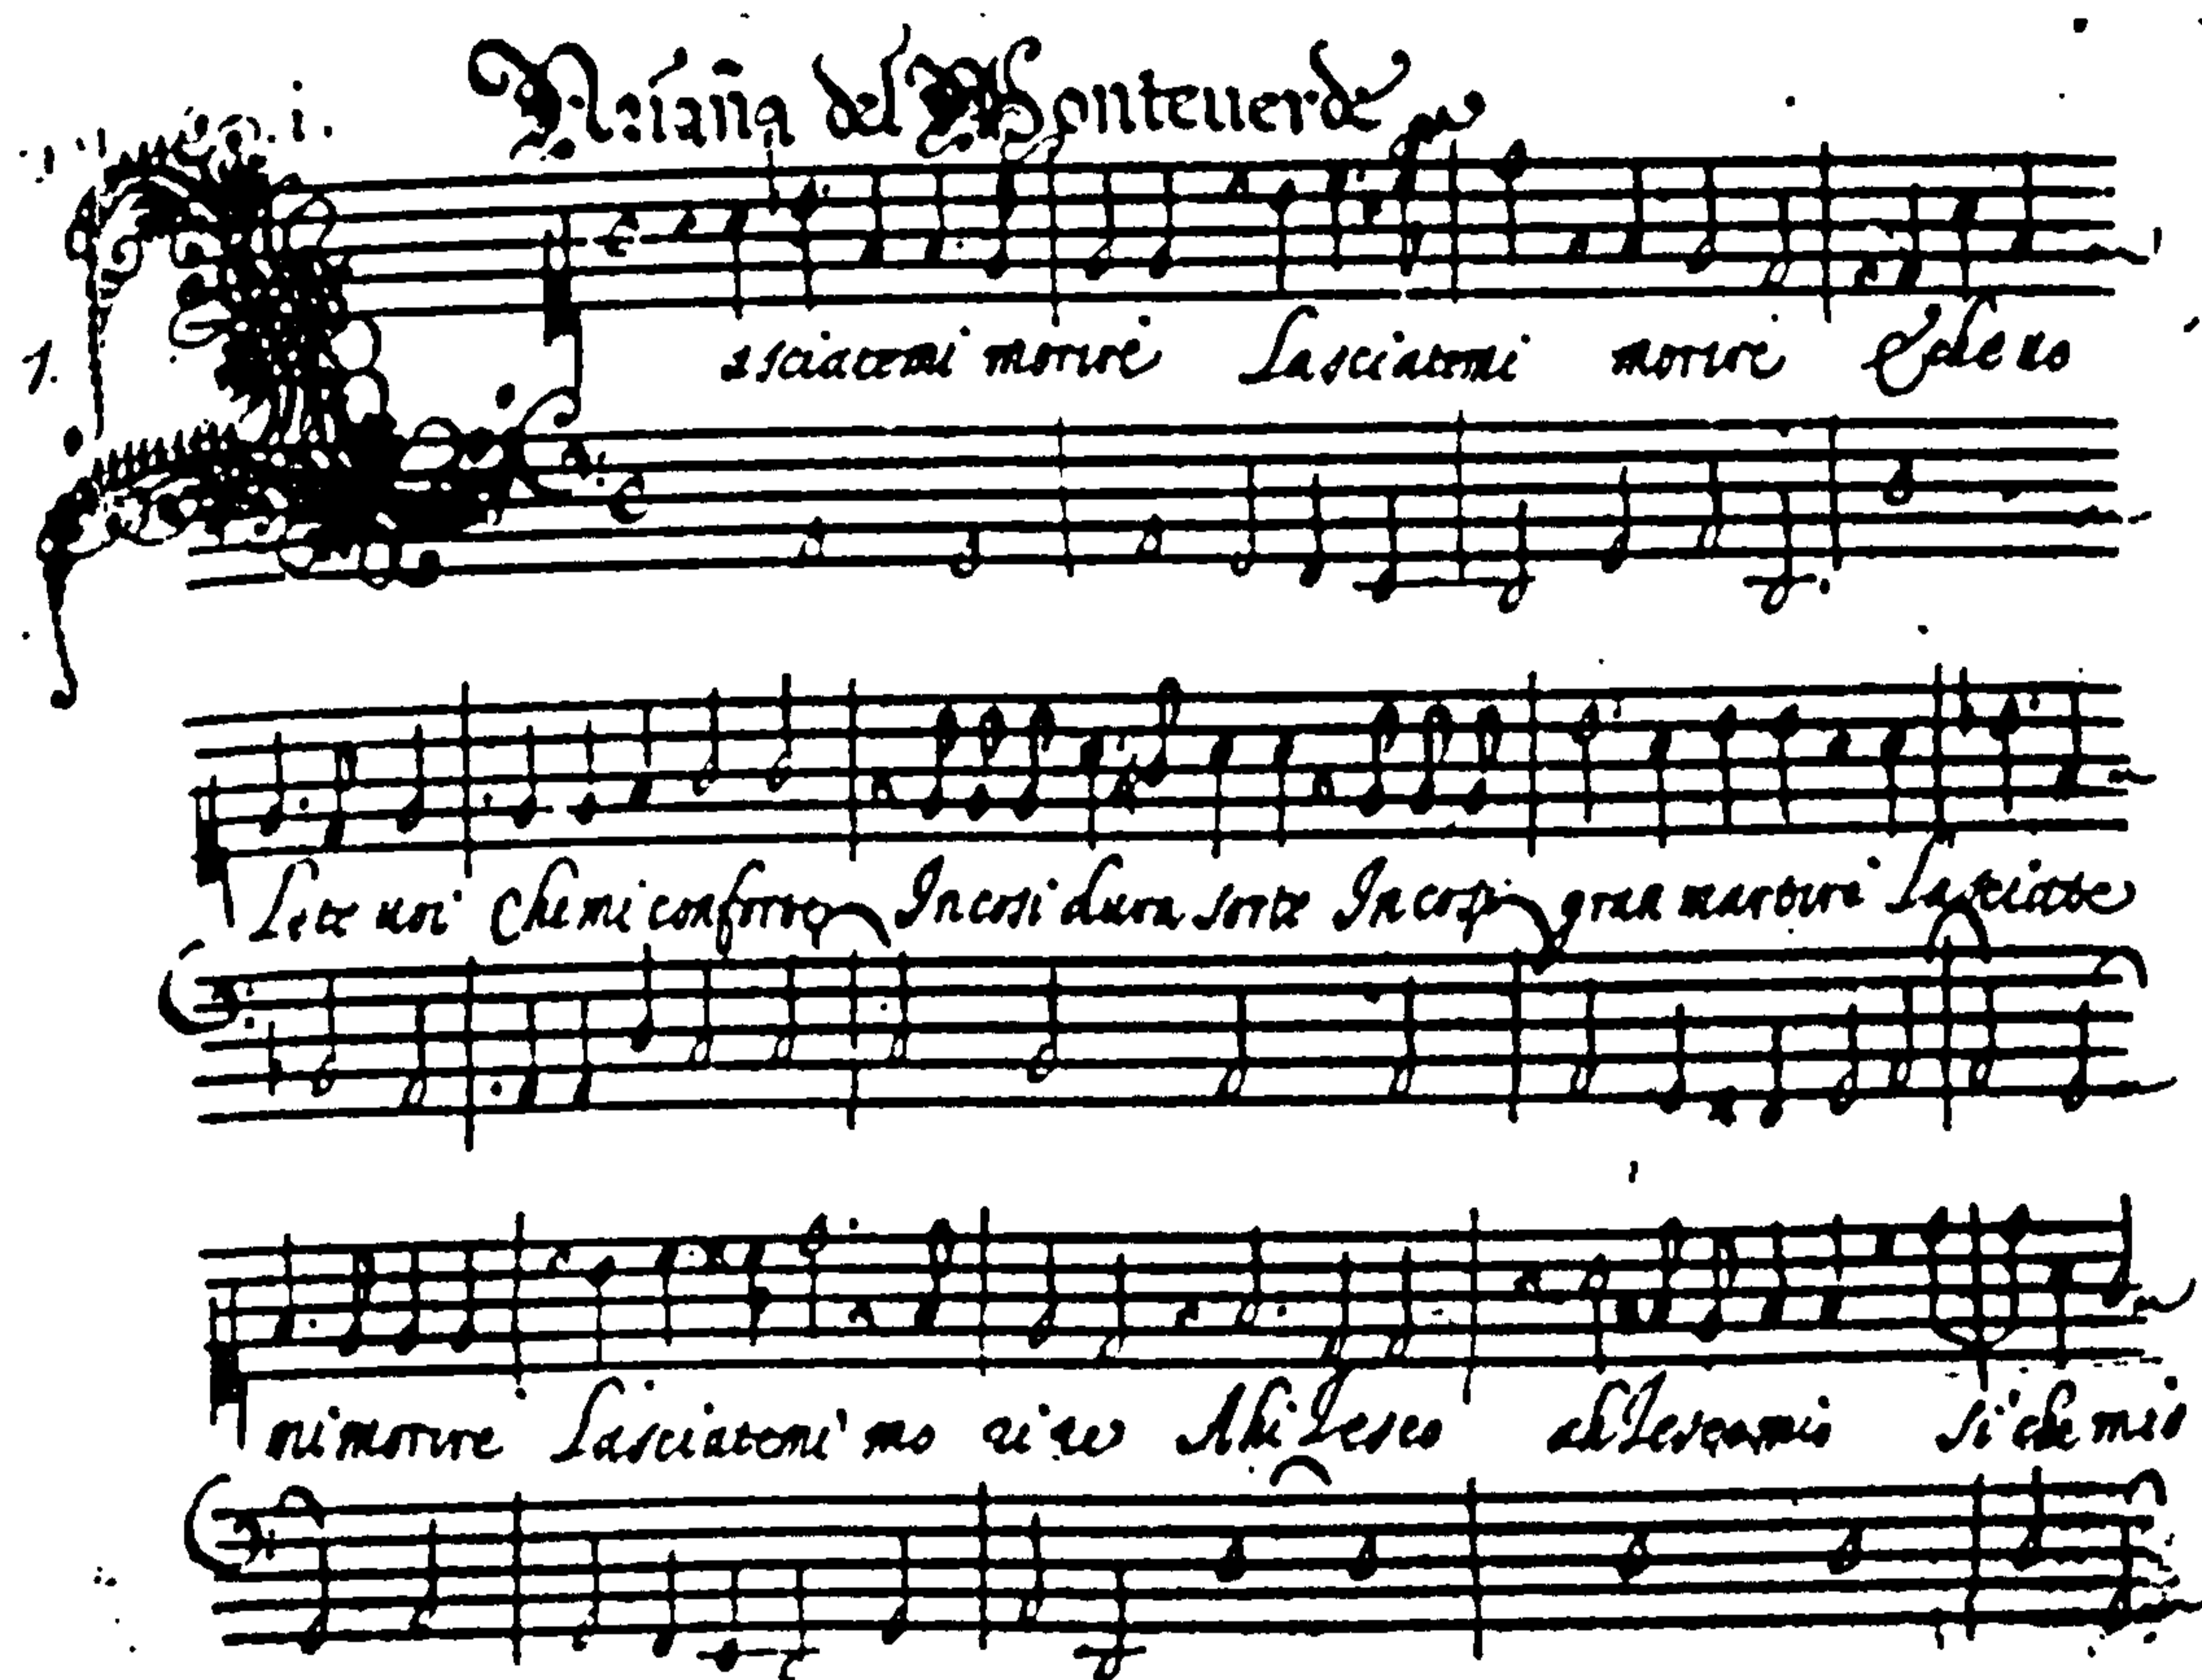 Ariana del Monteuerde
.1.
1.
asciatemi morire Lasciatemi morire E che uo
lete uoi Che mi conforte In cosi dura sorte In cosi gran martire Lasciate
mi morire Lasciatemi mo ri re Ahi Teseo ah Teseo mio si che mio